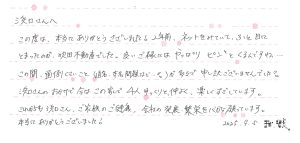 沢口さんへ
この度は、本当にありがとうございました。2年前、ネットをみていて、ふと目に
とまったのが、沢田不動産でした。良いご縁にはやっぱりピン!とくるんですね…
この間、面倒くさいこと(自宅、 問題など…)が ありで 申し訳ございませんでした。
沢口さんのおかげで今はこの家で4人ゆっくりと仲よく、楽しくすごしています。
これからも沢口さん、ご家族のご健康、会社の発展、繁栄を心から願っています。
本当にありがとうございました!
2025. 9. 5